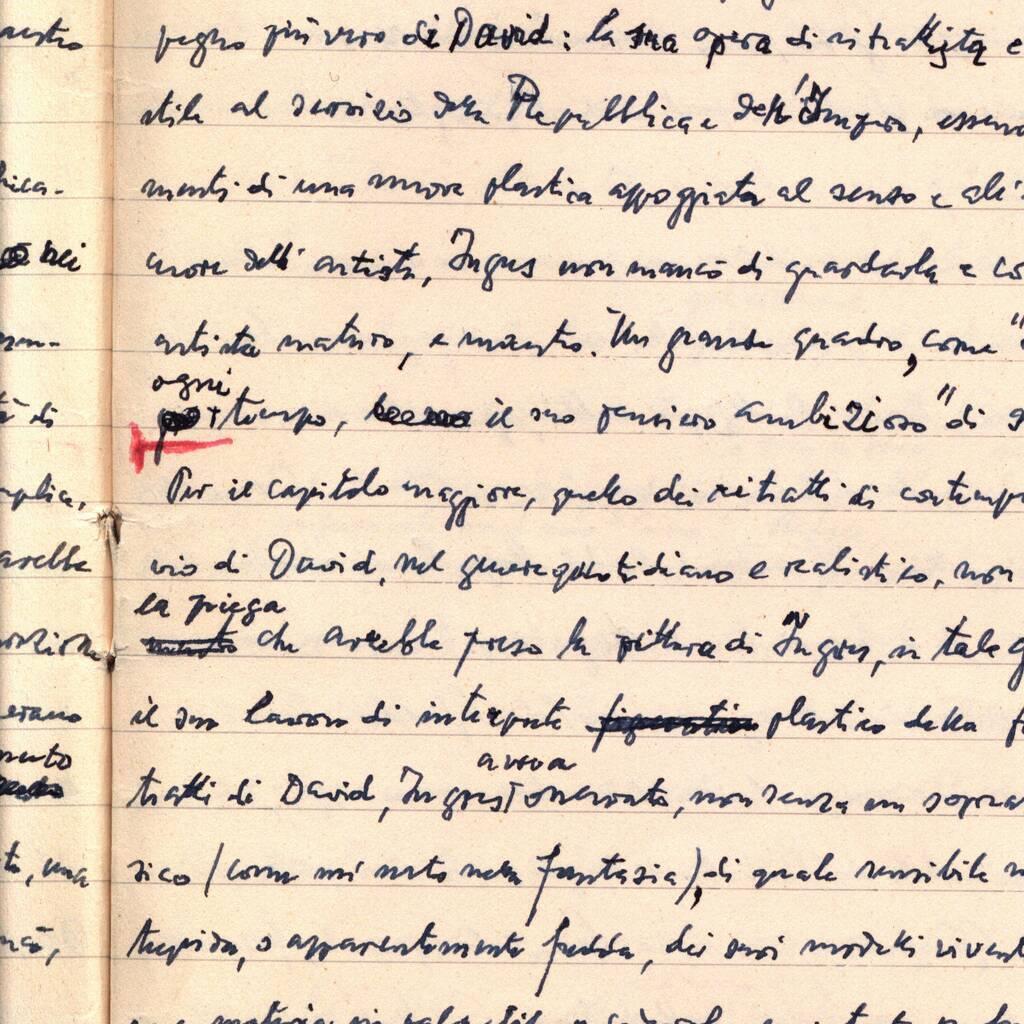 pegno più vero di David: la sua opera di ritrattista e
stile al servizio della Repubblica e dell'Impero, essen
menti di una nuova plastica appoggiata al senso e all'
more dell'artista, Ingres non mancò di guardarla e co
artista maturo, e maestro. Un grande quadro, come "
ogni
tempo, il suo pensiero ambizioso" di g
Per il capitolo maggiore, quello dei ritratti di contemp
vio di David, nel genere quotidiano e realistico, non
la piega
che avrebbe preso la pittura di Ingres, in tale q
il suo lavoro di interprete plastico della f
aveva
tratti di David, Ingres osservato, non senza un sopra
sico (come mi nella fantasia), di quale sensibile
o apparentemente fredda, dei suoi modelli vivent
maestro
nei
tà di
plica,
arebbe
erano
una